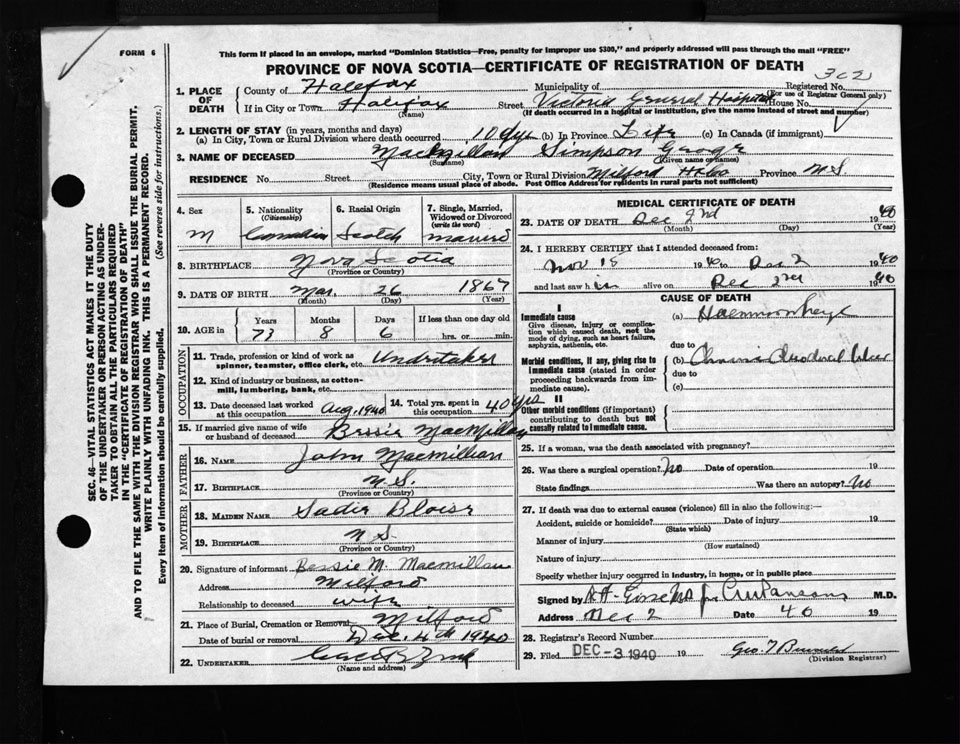 FORM 6
This form if placed in an envelope, marked "Dominion Statistics—Free, penalty for improper use $300," and properly addressed will pass through the mail "FREE"
PROVINCE OF NOVA SCOTIA—CERTIFICATE OF REGISTRATION OF DEATH
302
1. PLACE OF DEATH
County of Halifax Municipality of Registered No.
(For use of Registrar General only)
If in City or Town Halifax Street Victoria General Hospital House No.
(Name) (If death occurred in a hospital or institution, give the name instead of street and number)
2. LENGTH OF STAY (in years, months and days)
(a) In City, Town or Rural Division where death occurred 10 dys (b) In Province Life (c) In Canada (if immigrant)
3. NAME OF DECEASED MacMillan Simpson George
(Surname) (Given name or names)
RESIDENCE No. Street City, Town or Rural Division Milford Province N.S.
(Residence means usual place of abode. Post Office Address for residents in rural parts not sufficient)
4. Sex M
5. Nationality (Citizenship) Canadian
6. Racial Origin Scotch
7. Single, Married, Widowed or Divorced (write the word) married
8. BIRTHPLACE Nova Scotia
(Province or Country)
9. DATE OF BIRTH Mar. 26 1867
(Month) (Day) (Year)
10. AGE in Years Months Days If less than one day old
73 8 6 hrs. or min.
OCCUPATION
11. Trade, profession or kind of work as spinner, teamster, office clerk, etc. Undertaker
12. Kind of industry or business, as cotton-mill, lumbering, bank, etc.
13. Date deceased last worked at this occupation Aug. 1940
14. Total yrs. spent in this occupation 40 yrs
15. If married give name of wife or husband of deceased Bessie MacMillan
FATHER
16. NAME John Macmillian
17. BIRTHPLACE N.S.
(Province or Country)
MOTHER
18. MAIDEN NAME Sadie Blois
19. BIRTHPLACE N.S.
(Province or Country)
20. Signature of informant Bessie M. Macmillan
Address Milford
Relationship to deceased wife
21. Place of Burial, Cremation or Removal Milford
Date of burial or removal Dec. 4th 1940
22. UNDERTAKER
(Name and address)
MEDICAL CERTIFICATE OF DEATH
23. DATE OF DEATH Dec 2nd 1940
(Month) (Day) (Year)
24. I HEREBY CERTIFY that I attended deceased from:
Nov 18 1940 to Dec 2 1940
and last saw him alive on Dec 2nd 1940
CAUSE OF DEATH
I
Immediate cause
Give disease, injury or complication which caused death, not the mode of dying, such as heart failure, asphyxia, asthenia, etc.
(a) Haemmorrhage
due to
Morbid conditions, if any, giving rise to immediate cause (stated in order proceeding backwards from immediate cause).
(b) Chronic Duodenal Ulcer
due to
(c)
II
Other morbid conditions (if important) contributing to death but not causally related to immediate cause.
25. If a woman, was the death associated with pregnancy?
26. Was there a surgical operation? No Date of operation 19
State findings Was there an autopsy? No
27. If death was due to external causes (violence) fill in also the following:—
Accident, suicide or homicide? Date of injury 19
(State which)
Manner of injury
(How sustained)
Nature of injury
Specify whether injury occurred in industry, in home, or in public place
Signed by M.D.
Address Date Dec 2 40 19
28. Registrar's Record Number
29. Filed DEC -3 1940 19 Geo. T
(Division Registrar)
SEC. 46—VITAL STATISTICS ACT MAKES IT THE DUTY
OF THE UNDERTAKER OR PERSON ACTING AS UNDER-
TAKER TO OBTAIN ALL THE PARTICULARS REQUIRED
IN THE "CERTIFICATE OF REGISTRATION OF DEATH"
AND TO FILE THE SAME WITH THE DIVISION REGISTRAR WHO SHALL ISSUE THE BURIAL PERMIT.
WRITE PLAINLY WITH UNFADING INK. THIS IS A PERMANENT RECORD.
Every item of information should be carefully supplied. (See reverse side for instructions.)